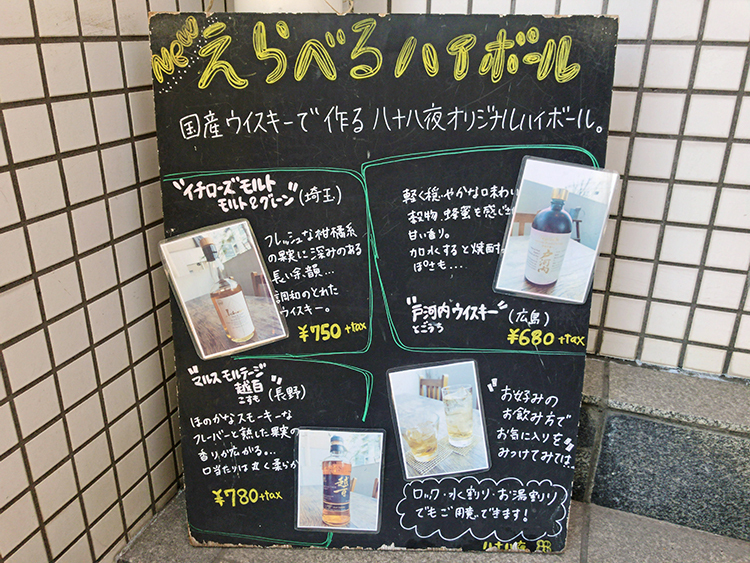 NEW えらべるハイボール
国産ウイスキーで作る 八十八夜オリジナルハイボール。
"イチローズモルト
モルト&グレーン" (埼玉)
フレッシュな柑橘系
の果実に深みのある
長い余韻...
調和のとれた
ウイスキー。
¥750+tax
軽く穏やかな口味わい
穀物、蜂蜜を感じ
甘い香り。
加水すると焼酎
ぽさも...
戸河内
"戸河内ウイスキー" (広島)
とごうち
¥680+tax
"マルス モルテージ
越百" (長野)
こすも
ほのかなスモーキーな
フレーバーと熟した果実の
香りが広がる...
口当たりは丸く柔らか
¥780+tax
越百
"お好みの
お飲み方で
お気に入りを
みつけてみては..."
ロック・水割り・お湯割り
でもご用意できます!
八十八夜